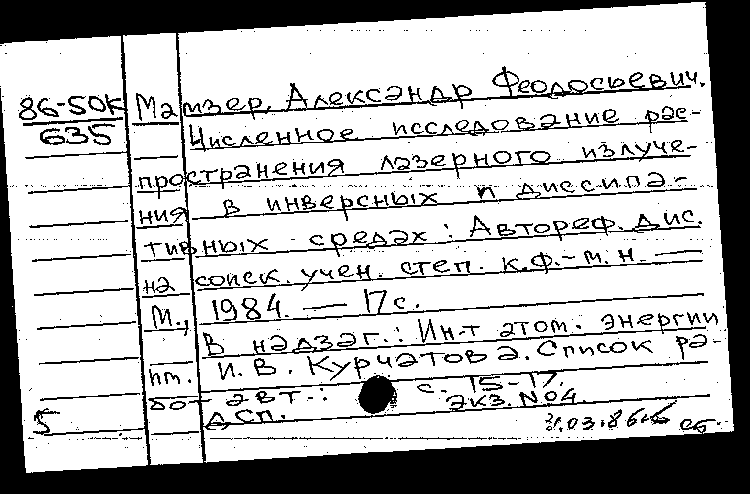 86-50К Мамзер, Александр Феодосьевич.
635 Численное исследование рас-
пространения лазерного излуче-
ния в инверсных и диссипа-
тивных средах : Автореф. дис.
на соиск. учен. степ. к.ф.-м.н. —
М., 1984. — 17 с.
В надзаг.: Ин-т атом. энергии
им. И. В. Курчатова. Список ра-
бот авт.: с. 15-17.
5 ДСП. Экз. №04.
03.86